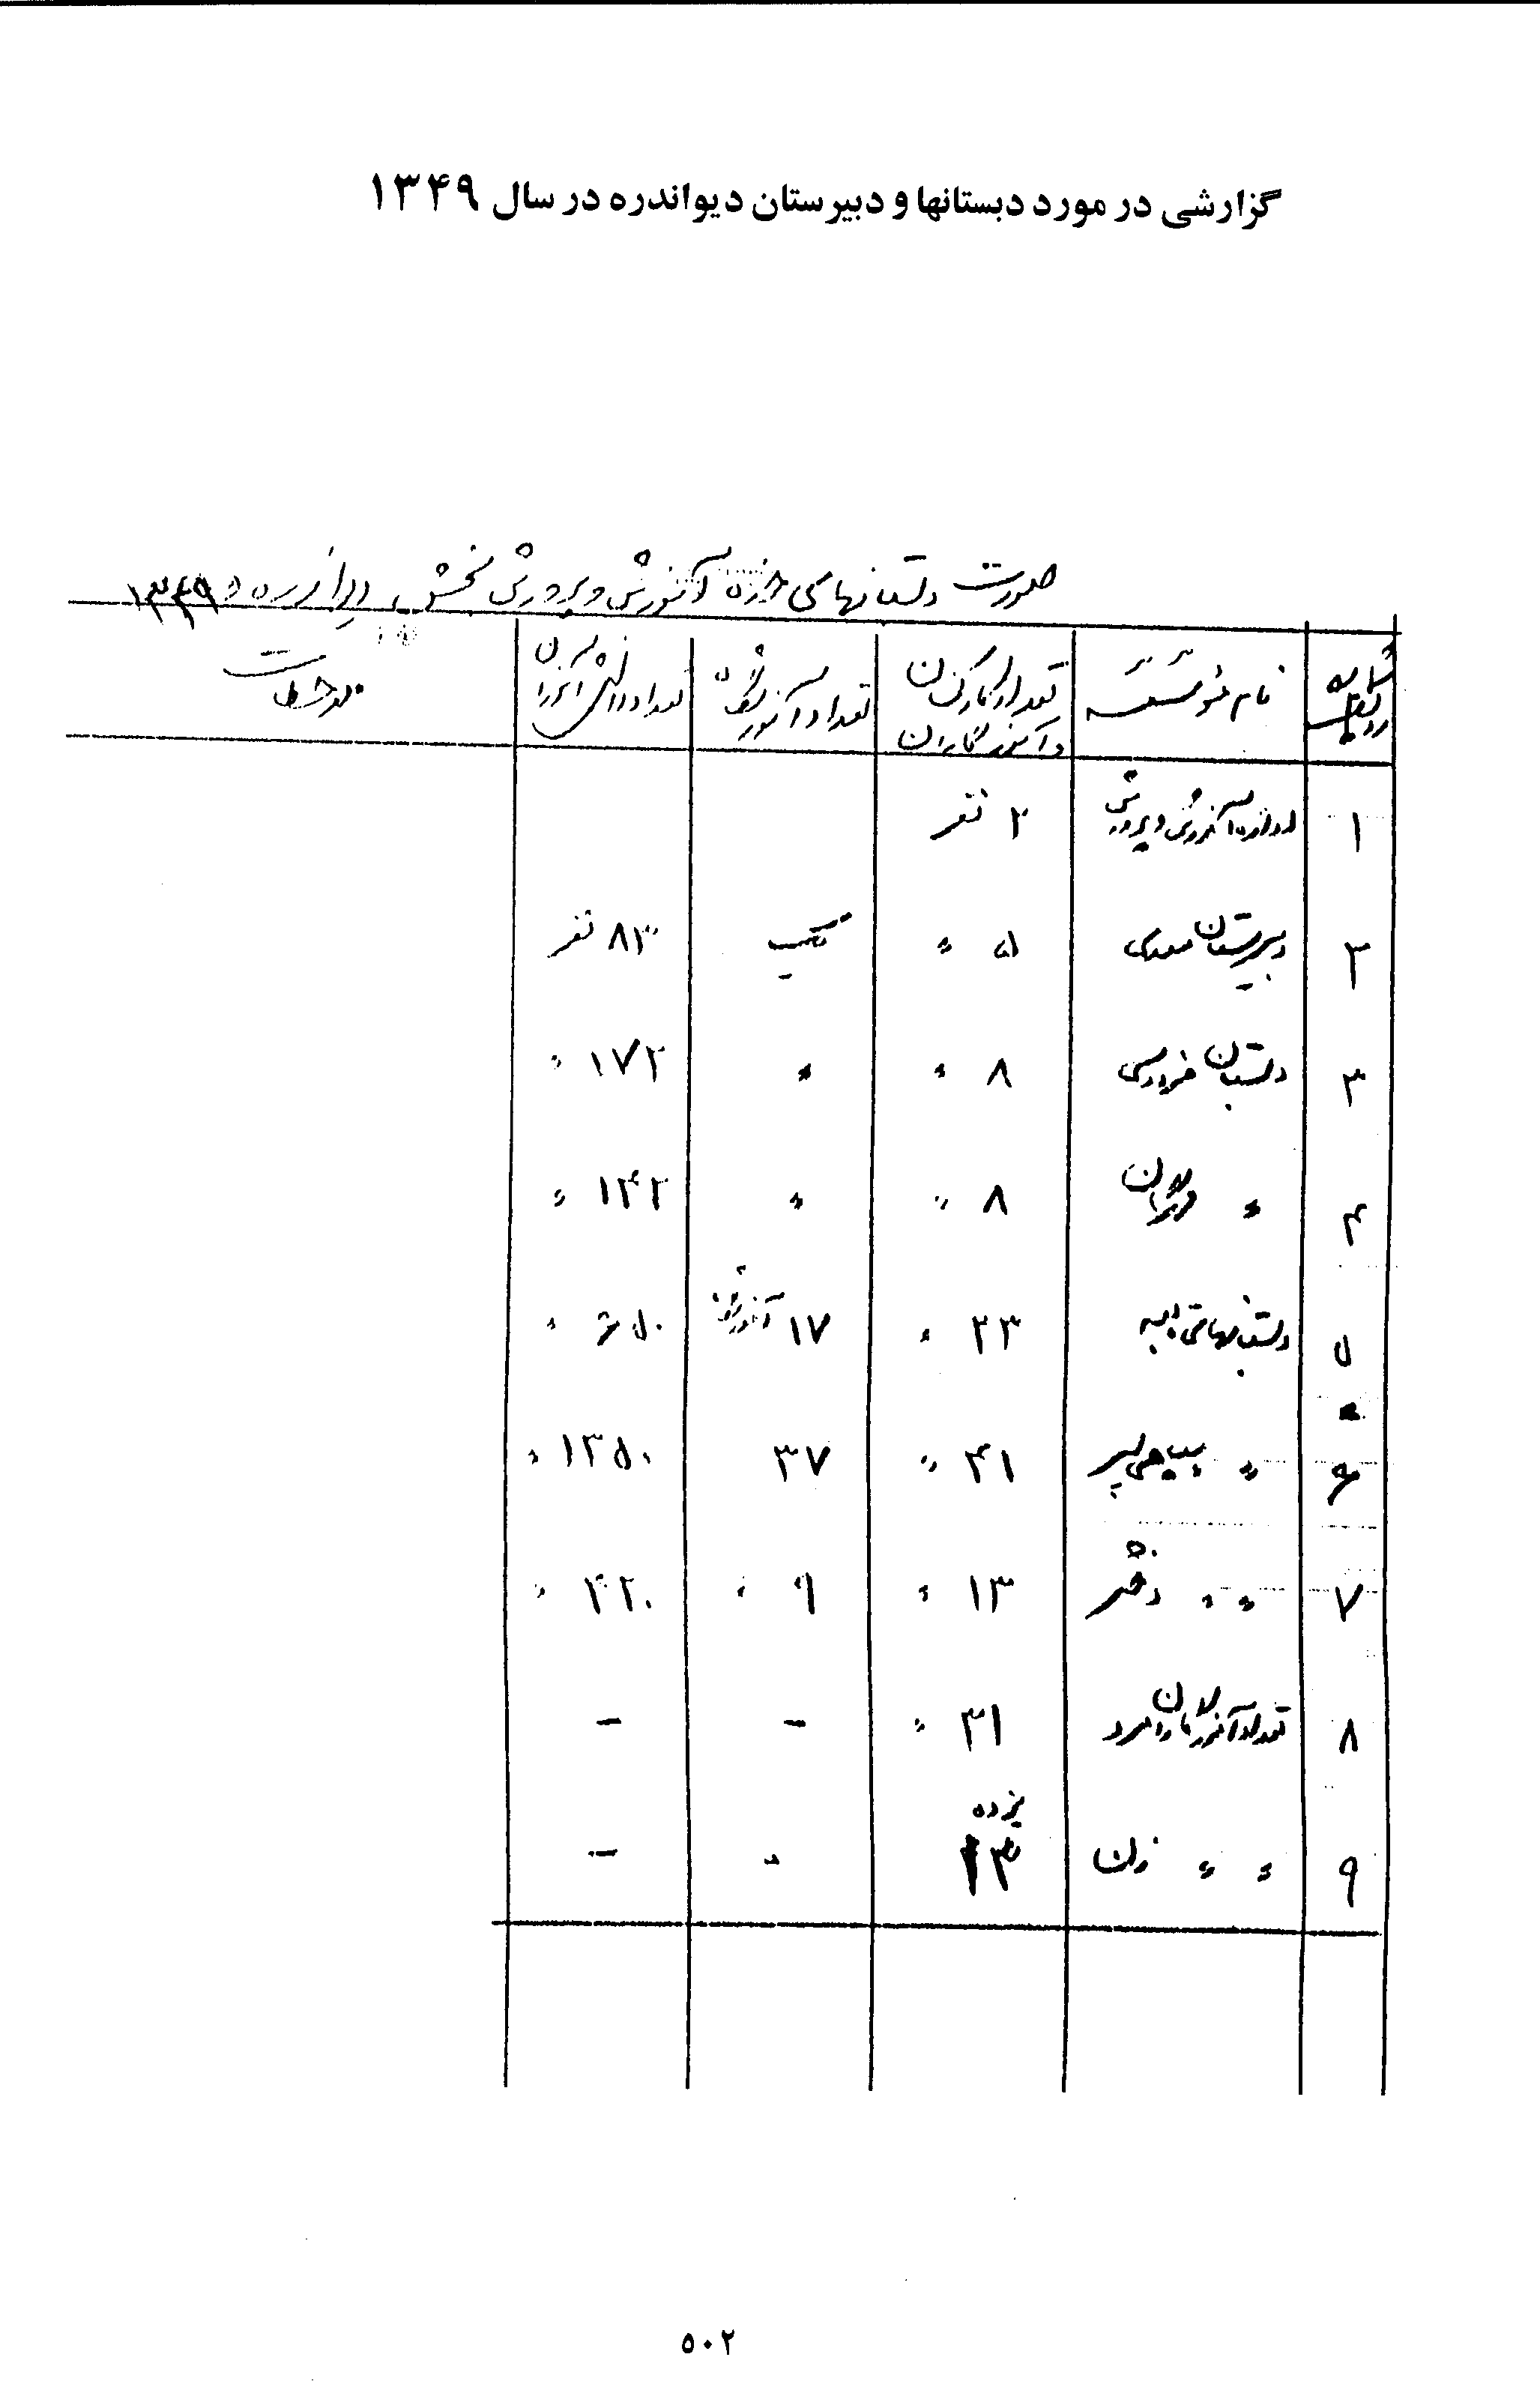 گزارشی در مورد دبستانها و دبیرستان دیواندره در سال ۱۳۴۹
صورت دبستانهای حوزه آموزش و پرورش بخش دیواندره ۱۳۴۹
شماره ردیف نام مؤسسه تعداد کارکنان و آموزگاران تعداد آموزشگاه تعداد دانش آموزان ملاحظات
۱ اداره آموزش و پرورش ۲ نفر
۲ دبیرستان سعدی ۵ " یکباب ۸۳ نفر
۳ دبستان فردوسی ۸ " " ۱۷۲ "
۴ " " ۸ " " ۱۴۲ "
۵ دبستانهای تابعه ۲۳ " ۱۷ آموزشگاه ۶۵۰ "
۶ " سپاهی پسر ۴۱ " ۳۷ ۱۲۵۰ "
۷ " " دختر ۱۳ " ۹ " ۴۲۰ "
۸ تعداد آموزگاران مرد ۳۱ " - -
۹ " " زن ۱۳ - -
۵۰۲